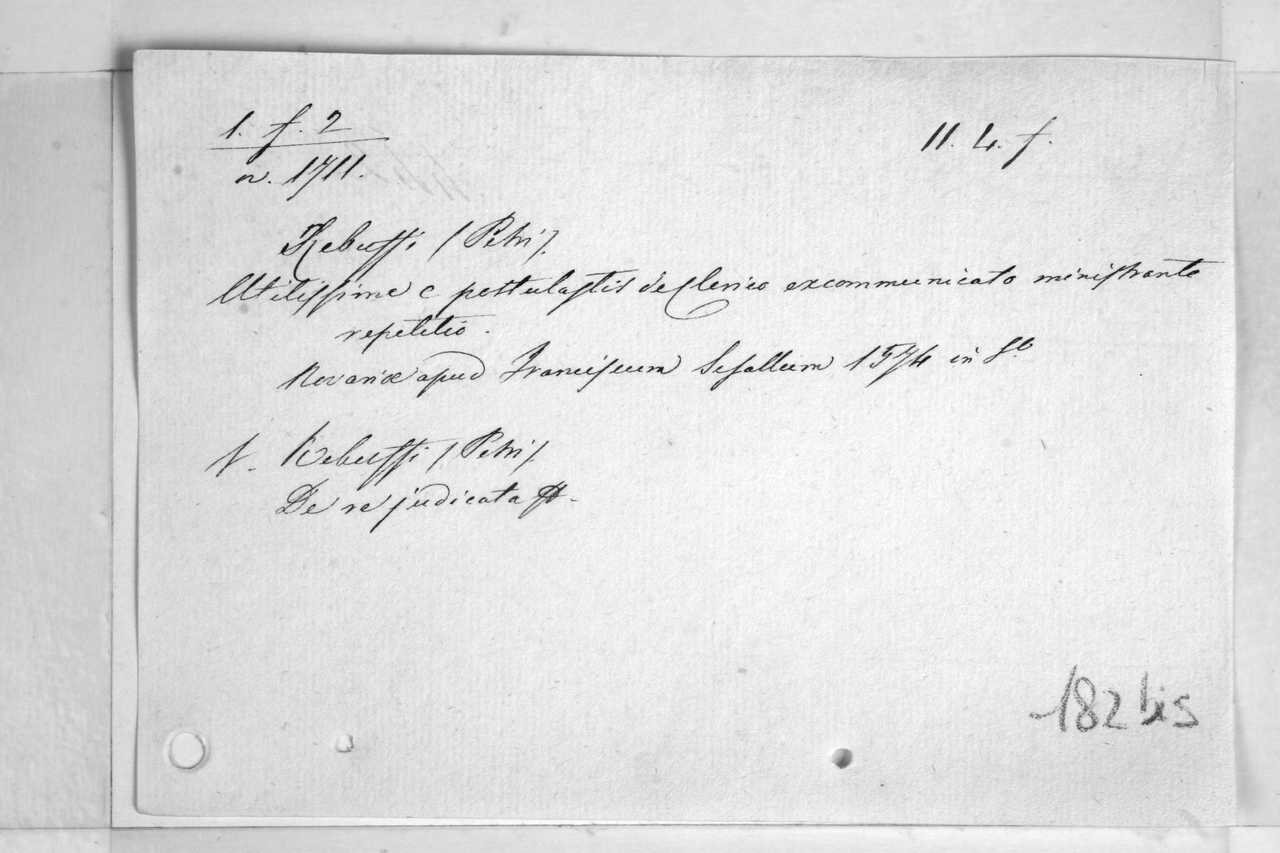 1. f. 2
11. 4. f.
n. 1711.
Rebuffi (Petri).
Utilissime c postulastis de Clerico excommunicato ministrante
repetitio.
Novariæ apud Franciscum Sesallum 1574 in 8º
V. Rebuffi (Petri).
De re judicata
182 bis